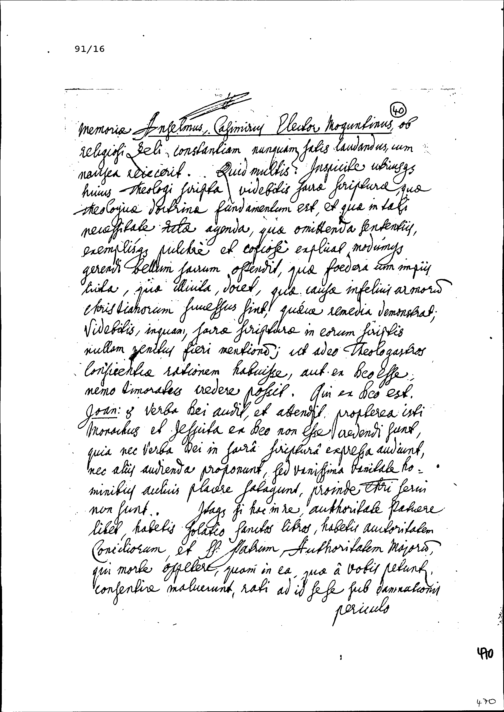 91/16
(40)
memoria Anselmus, Casimirus Elector Moguntinus, ob
religiosi Zeli constantiam nunquam satis laudandus, cum
nausea reiecerit. Quid multis? Inspicite utriusque
huius theologi scripta, videbitis sacra scriptura, quae
theologica doctrina fundamentum est, et qua in tali
necessitate acta agenda, qua omittenda sententiis,
exemplisque pulchrè et copiosè explicat, modumque
gerendi bellum sacrum ostendit, quae foedera cum impiis
licita, quae illicita, docet, quae causa infelicis armorum
christianorum successus sint, quaeve remedia demonstrat;
Videbitis, inquam, sacra scriptura in eorum scriptis
nullam penitus fieri mentionem; ut adeo Theologastros
Conscientia rationem habuisse, aut ex Deo esse,
nemo timoratus credere possit. Qui ex Deo est.
Joan: 8 verba Dei audit, et attendit, propterea isti
Monachus et Jesuita ex Deo non esse credendi sunt,
quia nec Verba Dei in sacrâ scripturâ expressa audiunt,
nec aliis audienda proponunt, sed vanissima vanitate ho=
minibus aulicis placere satagunt, proinde Christi servi
non sunt. Itaque si hac in re, authoritate
libet, habetis Solatio Sanctos libros, habetis auctoritatem
Conciliorum, et SS. Patrum, Authoritatem Majorum,
qui morte oppetere, quam in ea, qua â vobis petunt,
consentire maluerunt, rati ad id sese sub damnationis
periculo
470
470